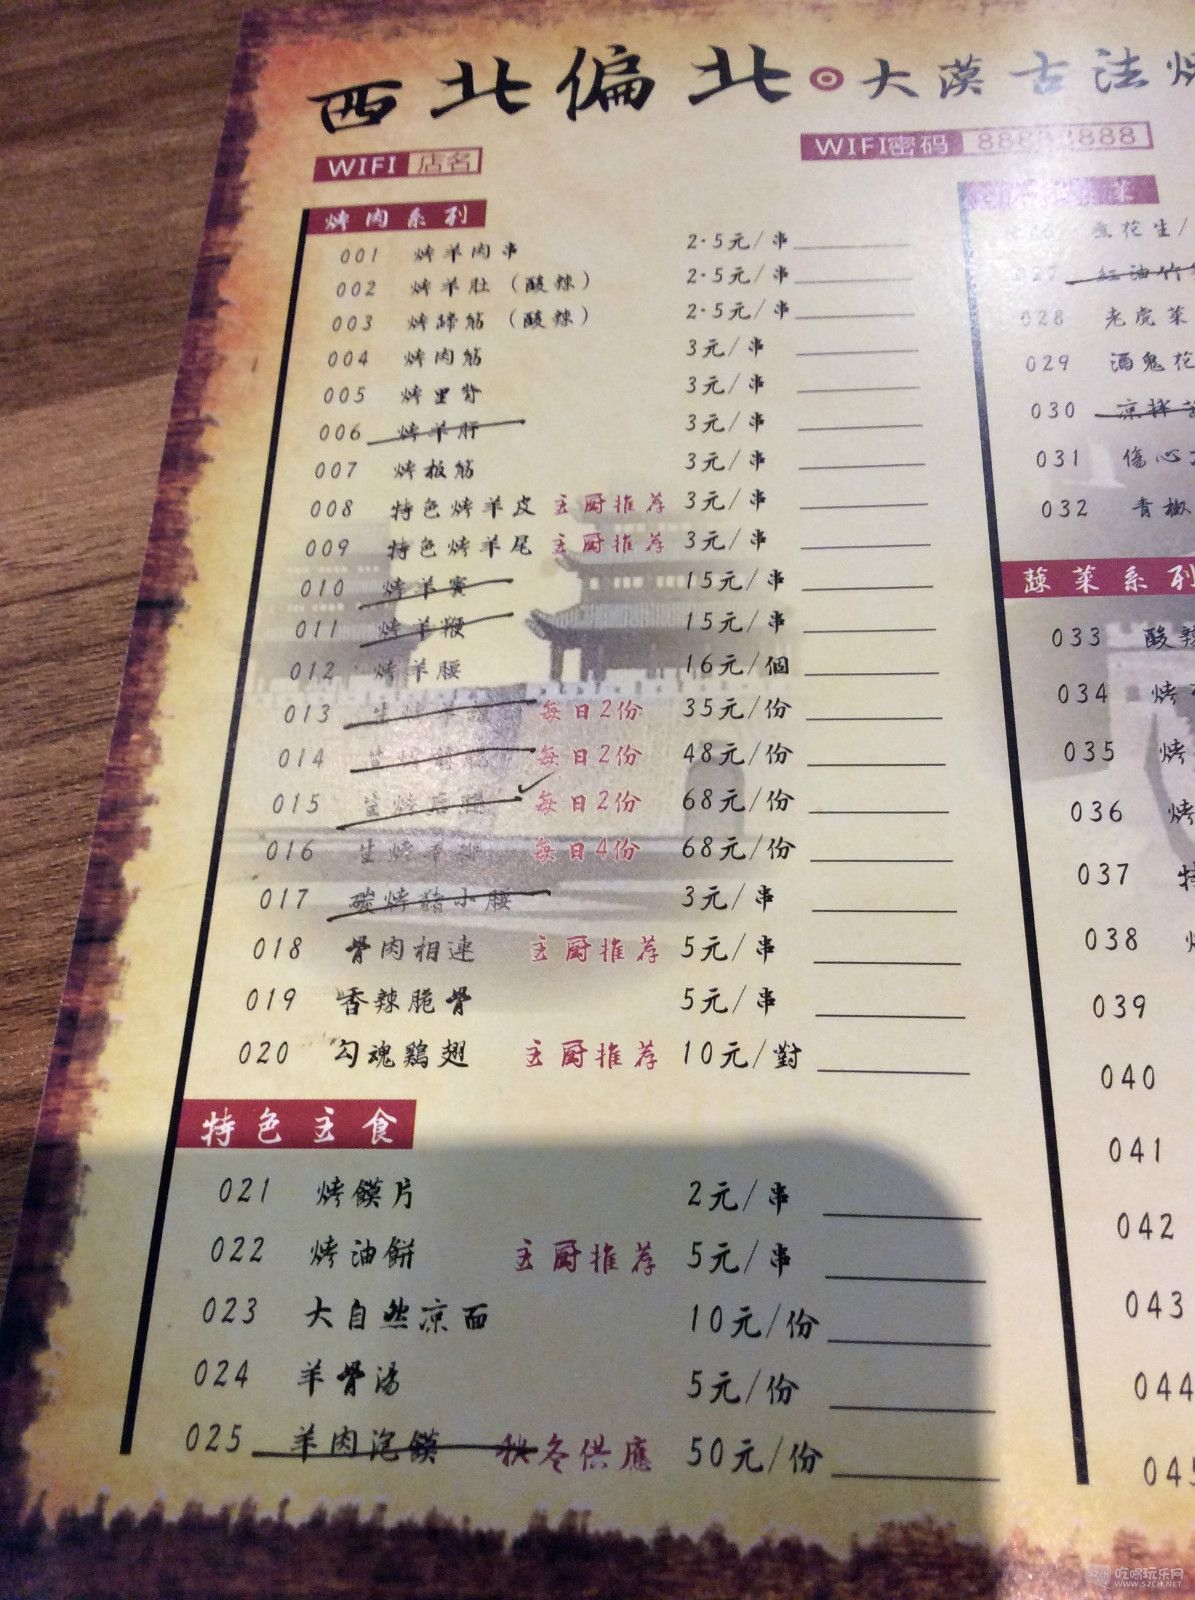 西北偏北 大漠古法烤
WIFI 店名
WIFI密码
烤肉系列
001 烤羊肉串 2.5元/串
002 烤羊肚（酸辣） 2.5元/串
003 烤蹄筋（酸辣） 2.5元/串
004 烤肉筋 3元/串
005 烤里脊 3元/串
006 烤羊肝 3元/串
007 烤板筋 3元/串
008 特色烤羊皮 主厨推荐 3元/串
009 特色烤羊尾 主厨推荐 3元/串
010 烤羊寳 15元/串
011 烤羊鞭 15元/串
012 烤羊腰 16元/個
013 每日2份 35元/份
014 每日2份 48元/份
015 每日2份 68元/份
016 生烤羊排 每日4份 68元/份
017 碳烤豬小腰 3元/串
018 骨肉相連 主厨推荐 5元/串
019 香辣脆骨 5元/串
020 勾魂鷄翅 主厨推荐 10元/對
特色主食
021 烤饃片 2元/串
022 烤油餅 主厨推荐 5元/串
023 大自然凉面 10元/份
024 羊骨湯 5元/份
025 羊肉泡饃 秋冬供應 50元/份
煮花生/
027 红油竹
028 老虎菜
029 酒鬼花
030 凉拌
031 傷心
032 青椒
蔬菜系列
033 酸辣
034 烤
035 烤
036 烤
037 特
038 烤
039
040
041
042
043
044
045
吃喝玩乐网
WWW.52CH.NET